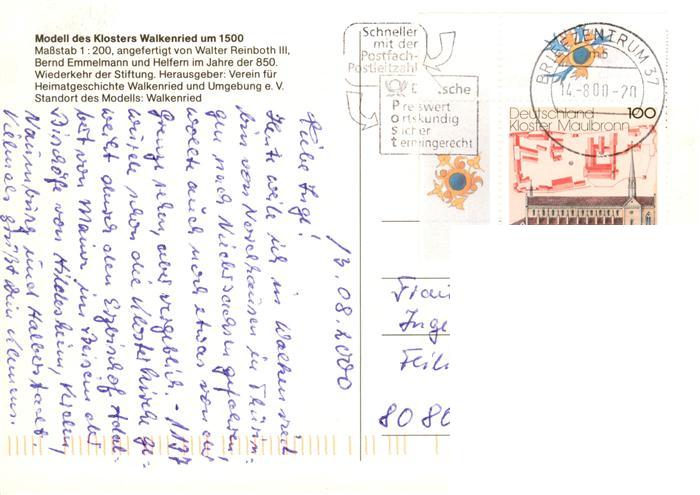 Modell des Klosters Walkenried um 1500
Maßstab 1 : 200, angefertigt von Walter Reinboth III,
Bernd Emmelmann und Helfern im Jahre der 850.
Wiederkehr der Stiftung. Herausgeber: Verein für
Heimatgeschichte Walkenried und Umgebung e. V.
Standort des Modells: Walkenried
Schneller
mit der
Postfach-
Postleitzahl
Deutsche
Preiswert
ortskundig
sicher
termingerecht
BRIEFZENTRUM 37
mb
14-8.00-20
Deutschland 100
Kloster Maulbronn
13.08.2000
Liebe Inge!
Heute weile ich in Walkenried
bin von Nordhausen in Thürin-
gen nach Niedersachsen gefahren,
wollte auch noch etwas von der
Grenze sehen, aber vergeblich. - 1137
wurde schon die Klosterkirche ge-
weiht durch den Erzbischof Adal-
bert von Mainz im Beisein der
Bischöfe von Hildesheim, Verden,
Naumburg und Halberstadt.
Vielmals grüßt Dein Klemens.
Frau
Inge
Feil
8080